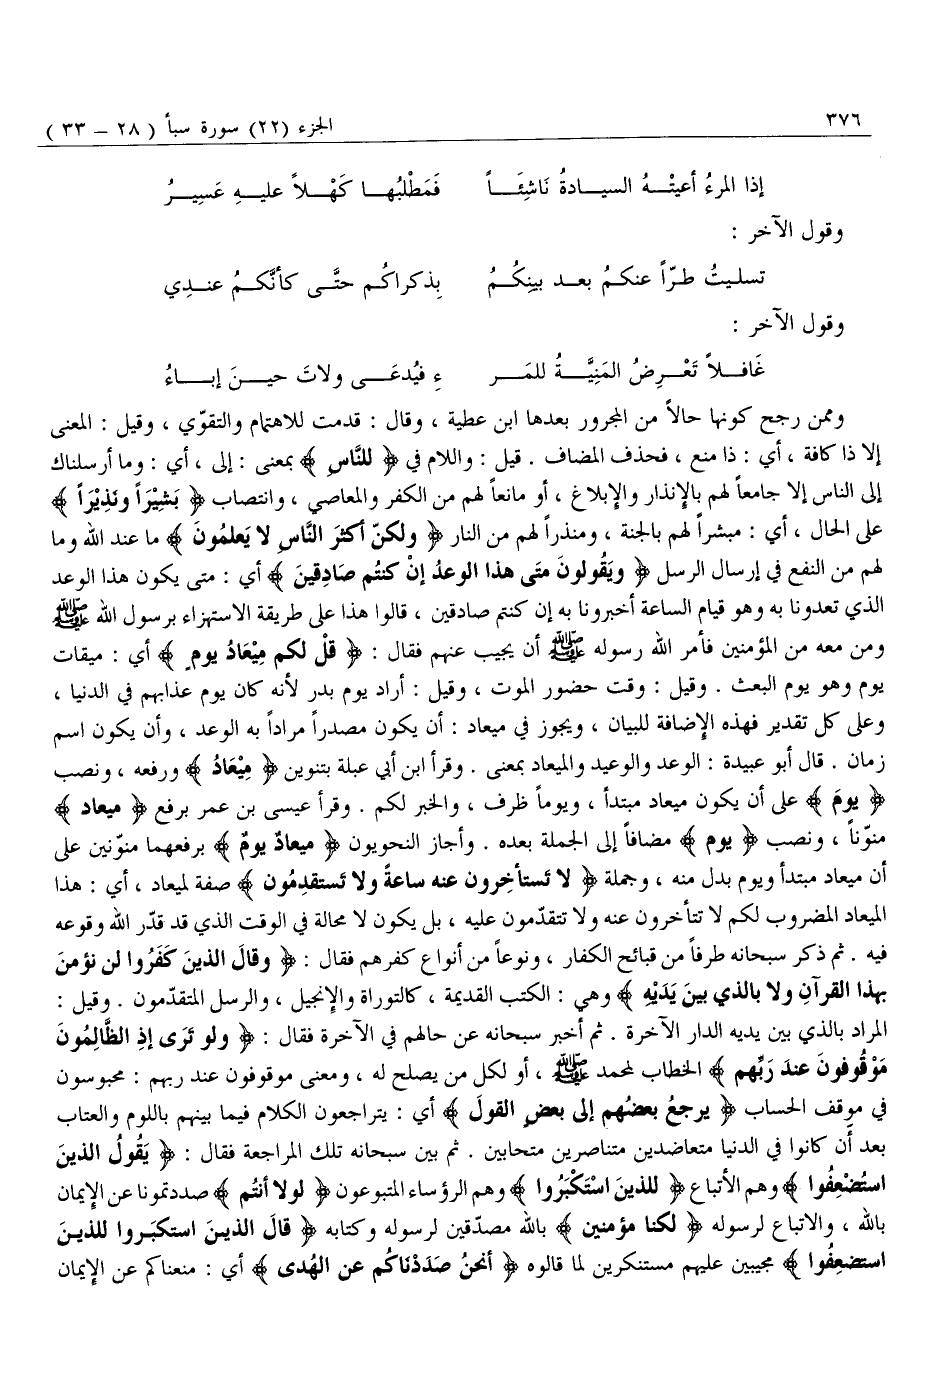 ٣٧٦ الجزء (٢٢) سورة سبأ ( ٢٨ – ٣٣ )
إذا المرءُ أعيتْـهُ السيـادةُ نَاشِئَـاً فَمَطْلبُهـا كَهْـلاً عليـهِ عَسِيـرُ
وقول الآخر :
تسليتُ طرّاً عنكمُ بعـد بينِكـمُ بِذكراكُـم حتَّـى كأنَّكـمُ عنـدِي
وقول الآخر :
غَافـلاً تَعْـرِضُ المَنِيَّـةُ للمَـر ءِ فيُدعَـى ولاتَ حيـنَ إبـاءُ
وممن رجح كونها حالاً من المجرور بعدها ابن عطية ، وقال : قدمت للاهتمام والتقوّي ، وقيل : المعنى
إلا ذا كافة ، أي : ذا منع ، فحذف المضاف . قيل : واللام في ﴿ للنَّاسِ ﴾ بمعنى : إلى ، أي : وما أرسلناك
إلى الناس إلا جامعاً لهم بالإنذار والإبلاغ ، أو مانعاً لهم من الكفر والمعاصي ، وانتصاب ﴿ بَشيْرَاً ونَذِيْرَاً ﴾
على الحال ، أي : مبشراً لهم بالجنة ، ومنذراً لهم من النار ﴿ ولكنّ أكثرَ النَّاسِ لا يَعلمُونَ ﴾ ما عند الله وما
لهم من النفع في إرسال الرسل ﴿ ويَقُولونَ متَى هذا الوعدُ إنْ كنتُم صَادِقِينَ ﴾ أي : متى يكون هذا الوعد
الذي تعدونا به وهو قيام الساعة أخبرونا به إن كنتم صادقين ، قالوا هذا على طريقة الاستهزاء برسول الله ﷺ
ومن معه من المؤمنين فأمر الله رسوله ﷺ أن يجيب عنهم فقال : ﴿ قُلْ لكم مِيْعَادُ يومٍ ﴾ أي : ميقات
يوم وهو يوم البعث . وقيل : وقت حضور الموت ، وقيل : أراد يوم بدر لأنه كان يوم عذابهم في الدنيا ،
وعلى كل تقدير فهذه الإضافة للبيان ، ويجوز في ميعاد : أن يكون مصدراً مراداً به الوعد ، وأن يكون اسم
زمان . قال أبو عبيدة : الوعد والوعيد والميعاد بمعنى . وقرأ ابن أبي عبلة بتنوين ﴿ مِيْعَادُ ﴾ ورفعه ، ونصب
﴿ يومَ ﴾ على أن يكون ميعاد مبتدأ ، ويوماً ظرف ، والخبر لكم . وقرأ عيسى بن عمر برفع ﴿ ميعاد ﴾
منوّناً ، ونصب ﴿ يوم ﴾ مضافاً إلى الجملة بعده . وأجاز النحويون ﴿ ميعادٌ يومٌ ﴾ برفعهما منوّنين على
أن ميعاد مبتدأ ويوم بدل منه ، وجملة ﴿ لا تَستأخِرون عنه ساعةً ولا تَستقدِمُون ﴾ صفة لميعاد ، أي : هذا
الميعاد المضروب لكم لا تتأخرون عنه ولا تتقدّمون عليه ، بل يكون لا محالة في الوقت الذي قد قدّر الله وقوعه
فيه . ثم ذكر سبحانه طرفاً من قبائح الكفار ، ونوعاً من أنواع كفرهم فقال : ﴿ وقالَ الذينَ كَفَرُوا لن نؤمنَ
بهذا القرآنِ ولا بالذي بينَ يَدَيْهِ ﴾ وهي : الكتب القديمة ، كالتوراة والإنجيل ، والرسل المتقدّمون . وقيل :
المراد بالذي بين يديه الدار الآخرة . ثم أخبر سبحانه عن حالهم في الآخرة فقال : ﴿ ولو تَرَى إذِ الظَّالِمُونَ
مَوْقُوفونَ عندَ رَبِّهم ﴾ الخطاب لمحمد ﷺ ، أو لكل من يصلح له ، ومعنى موقوفون عند ربهم : محبوسون
في موقف الحساب ﴿ يرجعُ بعضُهم إلى بعضٍ القولَ ﴾ أي : يتراجعون الكلام فيما بينهم باللوم والعتاب
بعد أن كانوا في الدنيا متعاضدين متناصرين متحابين . ثم بين سبحانه تلك المراجعة فقال : ﴿ يَقُولُ الذينَ
استُضْعِفُوا ﴾ وهم الأتباع ﴿ للذينَ اسْتَكْبَرُوا ﴾ وهم الرؤساء المتبوعون ﴿ لولا أنتُم ﴾ صددتمونا عن الإيمان
بالله ، والاتباع لرسوله ﴿ لكنا مؤمنين ﴾ بالله مصدّقين لرسوله وكتابه ﴿ قالَ الذيـنَ استكبَـروا للذيـنَ
استضعِفُوا ﴾ مجيبين عليهم مستنكرين لما قالوه ﴿ أنحنُ صَدَدْنَاكُم عن الهُدى ﴾ أي : منعناكم عن الإيمان